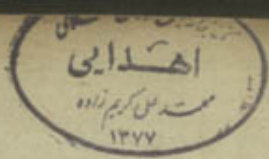 اهدایی
محمد علی کریم زاده
۱۳۷۷